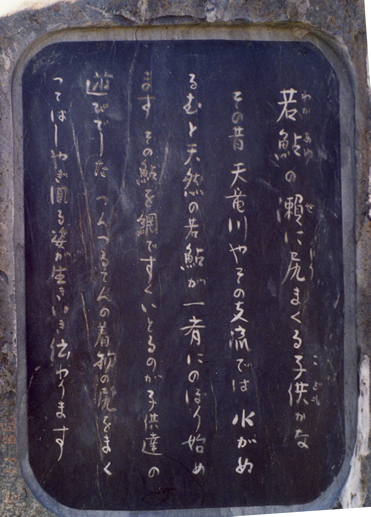 若鮎の瀬に尻まくる子供かな
その昔 天竜川やその支流では 水がぬ
るむと天然の若鮎が一斉にのぼり始め
ます その鮎を網ですくいとるのが子供達の
遊びでした つんつるてんの着物の尻をまく
ってはしゃぎ回る姿が生きいき伝わります